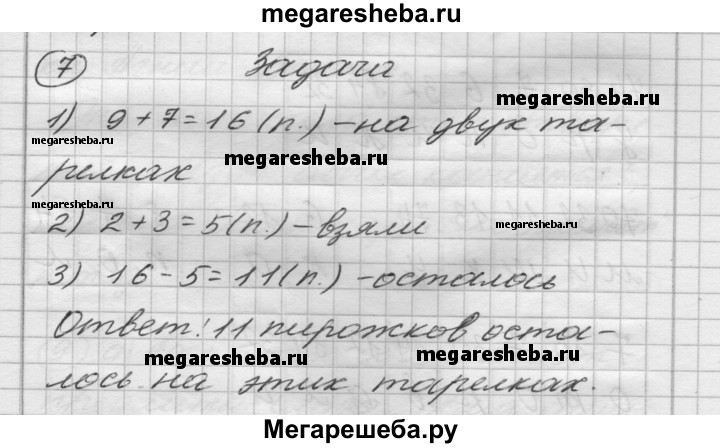 megaresheba.ru
7 Задача
megaresheba.ru
1) 9+7=16 (п.) – на двух та-
megaresheba.ru
megaresheba.ru
релках
2) 2+3=5(п.) – взяли
megaresheba.ru
megaresheba.ru
3) 16-5=11(п.) – осталось
Ответ: 11 пирожков оста-
megaresheba.ru
megaresheba.ru
лось на этих тарелках.
Мегарешеба.ру